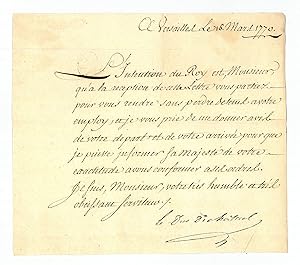 A Versailles Le 18 Mars 1770.
L'Intention du Roy est, Monsieur,
qu'a la reception de cette Lettre vous partiez
pour vous rendre sans perdre de tems a votre
employ, et je vous prie de me donner avis
de votre depart et de votre arrivée pour que
je puisse informer sa majesté de votre
exactitude a vous conformer a ses ordres.
Je suis, Monsieur, votre tres humble et tres
obeissant serviteur.
Le Duc De